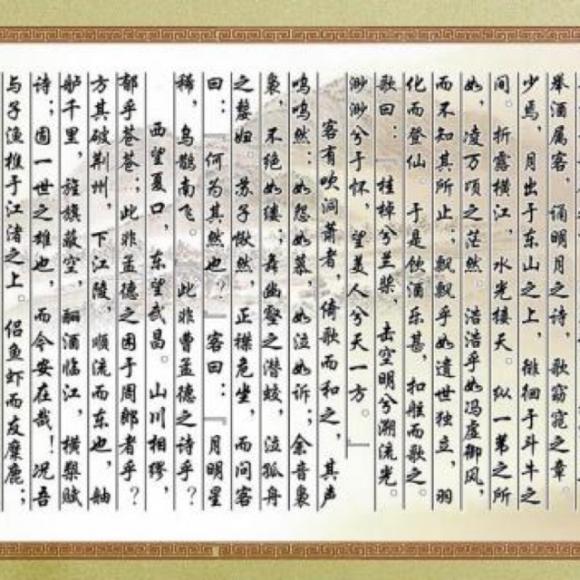 举酒属客，诵明月之诗，歌窈窕之章。
少焉，月出于东山之上，徘徊于斗牛之
间。折露横江，水光接天。纵一苇之所
如，凌万顷之茫然。浩浩乎如冯虚御风，
而不知其所止；飘飘乎如遗世独立，羽
化而登仙 于是饮酒乐甚，扣舷而歌之。
歌曰：『桂棹兮兰桨，击空明兮溯流光。
渺渺兮于怀，望美人兮天一方。』
客有吹洞萧者，倚歌而和之，其声
呜呜然：如怨如慕，如泣如诉；余音袅
袅，不绝如缕；舞幽壑之潜蛟，泣孤舟
之嫠妇。苏子愀然，正襟危坐，而问客
曰：『何为其然也？』客曰：『月明星
稀，乌鹊南飞。此非曹孟德之诗乎？
西望夏口，东望武昌。山川相缪，
郁乎苍苍；此非孟德之困于周郎者乎？
方其破荆州，下江陵，顺流而东也，舳
舻千里，旌旗蔽空，酾酒临江，横槊赋
诗；固一世之雄也，而今安在哉！况吾
与子渔樵于江渚之上。侣鱼虾而友麋鹿；